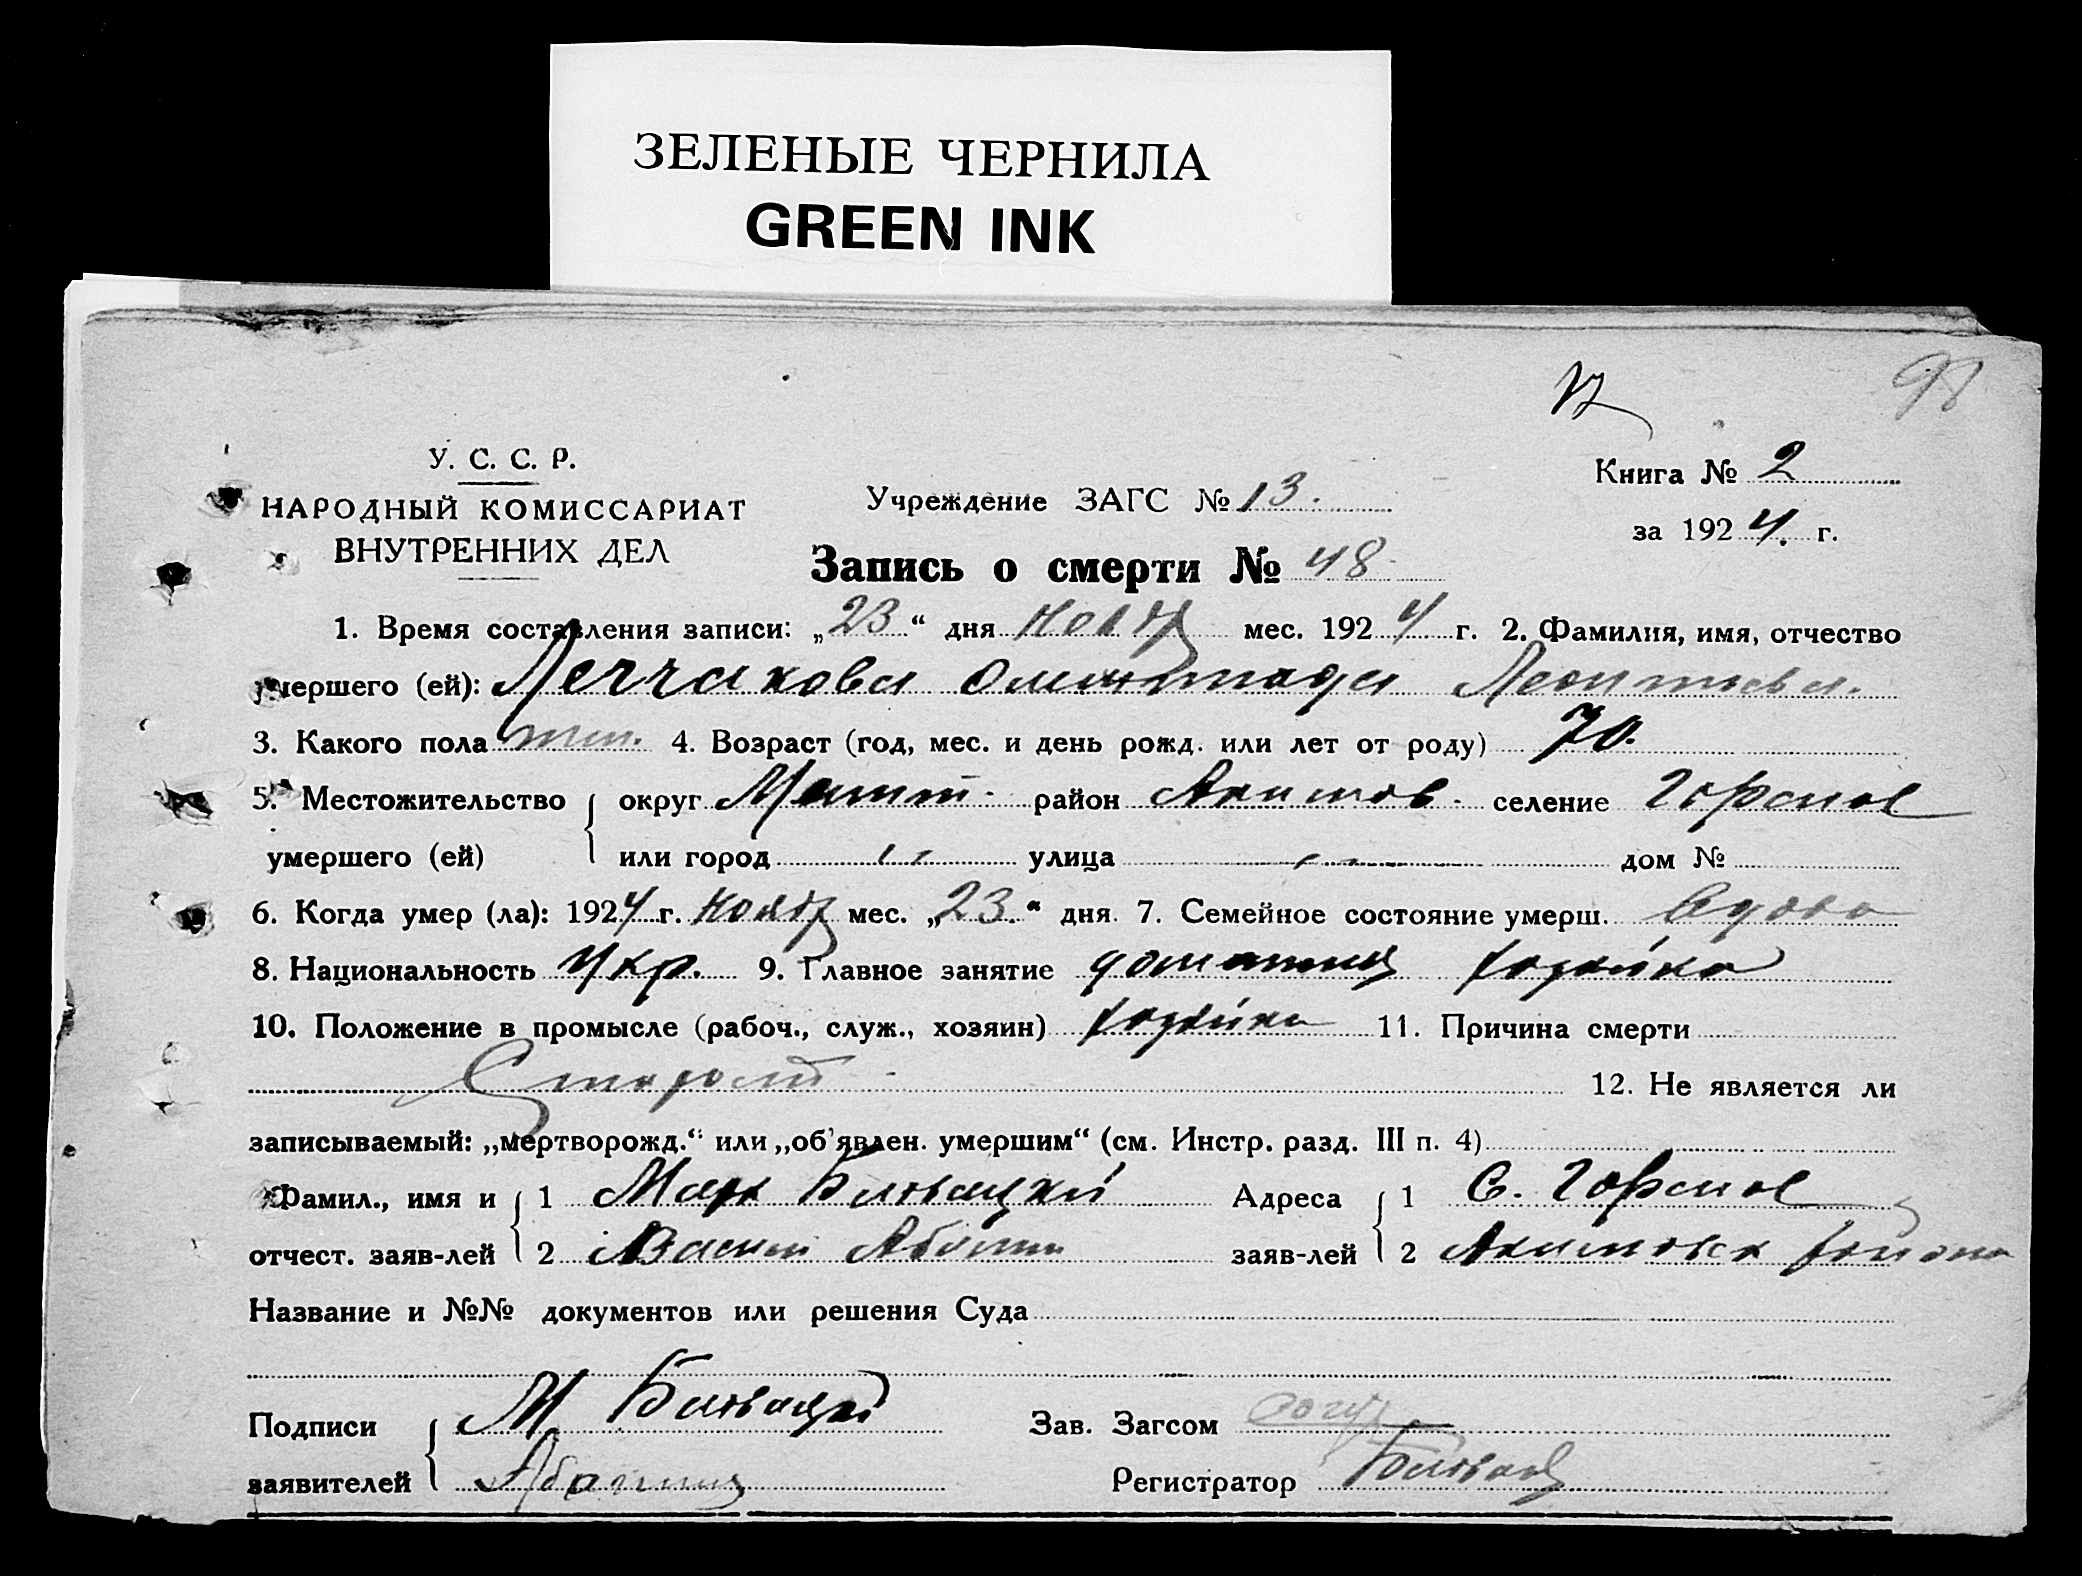 ЗЕЛЕНЫЕ ЧЕРНИЛА
GREEN INK
98
У. С. С. Р.
НАРОДНЫЙ КОМИССАРИАТ
ВНУТРЕННИХ ДЕЛ
Учреждение ЗАГС № 13.
Книга № 2
за 1924. г.
Запись о смерти № 48
1. Время составления записи: „23“ дня мес. 1924 г. 2. Фамилия, имя, отчество
умершего (ей):
3. Какого пола жен. 4. Возраст (год, мес. и день рожд. или лет от роду) 70.
5. Местожительство округ Мелит. район Акимов. селение Горемое
умершего (ей) или город улица дом №
6. Когда умер (ла): 1924 г. нояб мес. „23.“ дня. 7. Семейное состояние умерш. Вдова
8. Национальность Укр. 9. Главное занятие домашняя хозяйка
10. Положение в промысле (рабоч., служ., хозяин) хозяйка 11. Причина смерти
Старость 12. Не является ли
записываемый: „мертворожд.“ или „об'явлен. умершим“ (см. Инстр. разд. III п. 4)
Фамил., имя и 1 Марк Адреса 1 С.
отчест. заяв-лей 2 заяв-лей 2 Акимовск района
Название и №№ документов или решения Суда
Подписи М Зав. Загсом
заявителей Регистратор